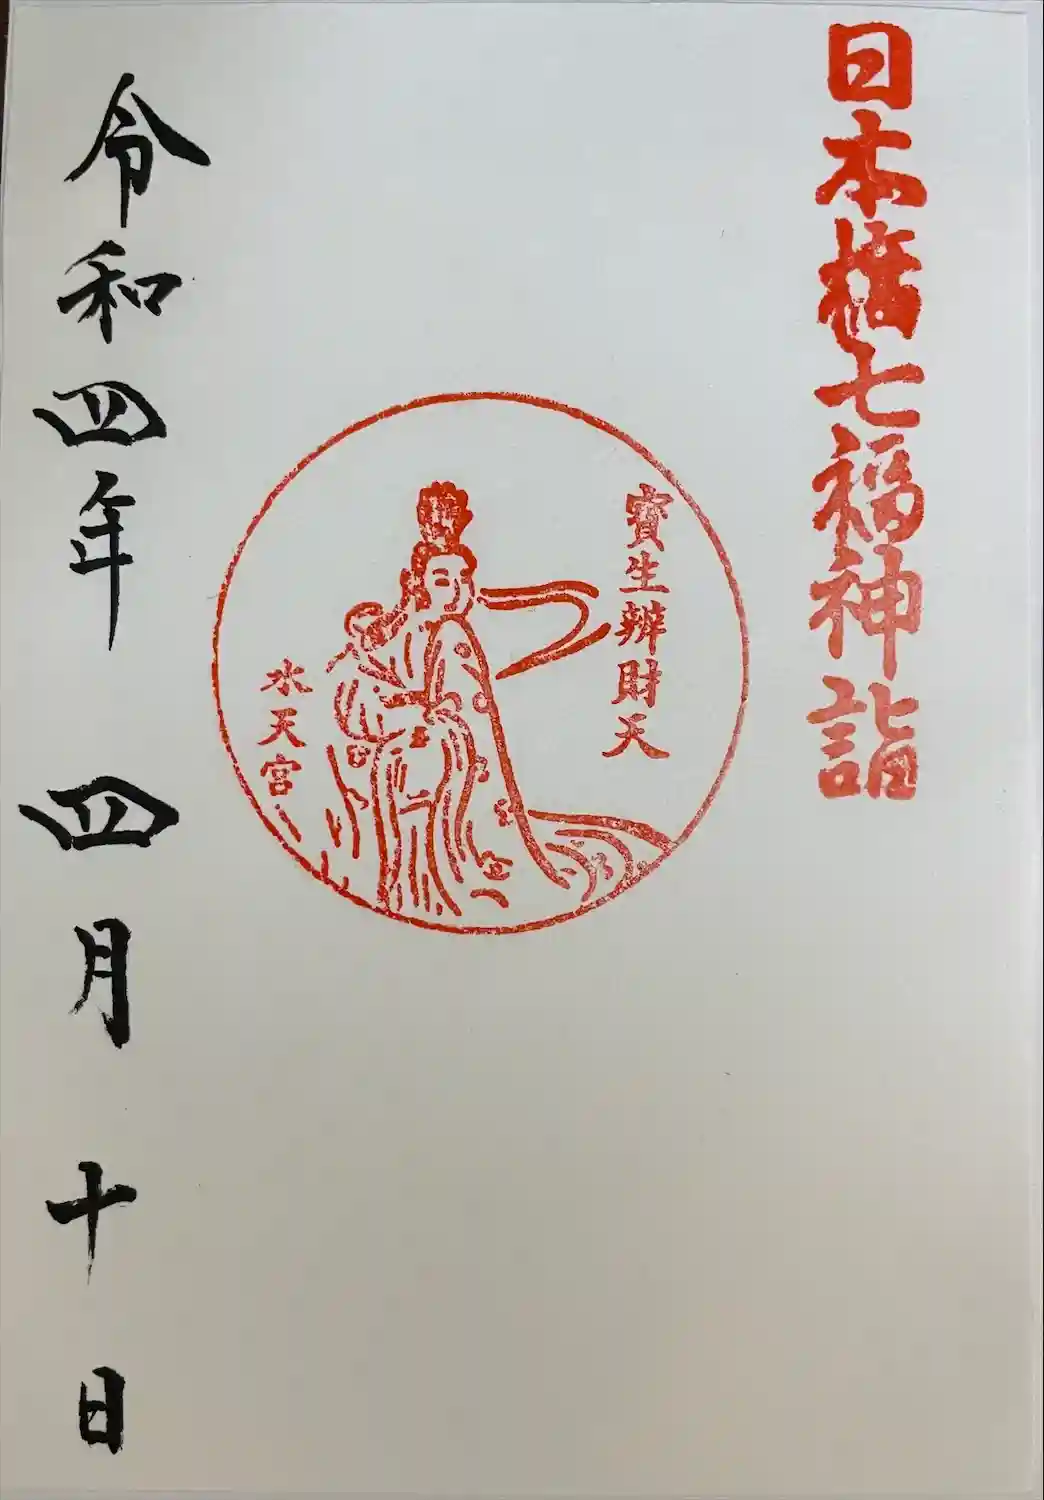 日本橋七福神詣
寶生辨財天
水天宮
令和四年 四月 十日